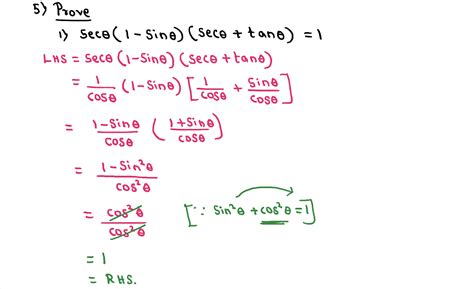 5) Prove
1) secθ (1-Sinθ) (secθ + tanθ) = 1
LHS = secθ (1-Sinθ) (secθ + tanθ)
= 1/cosθ (1-Sinθ) [1/cosθ + Sinθ/cosθ]
= 1-Sinθ/cosθ (1+Sinθ/cosθ)
= 1-Sin²θ/cos²θ
= cos²θ/cos²θ [∵ Sin²θ + cos²θ = 1]
= 1
= RHS.